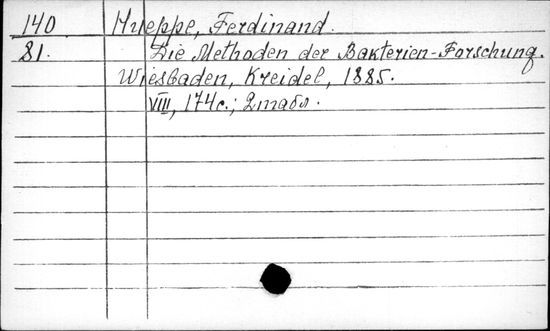 140 Hueppe, Ferdinand.
81. Die Methoden der Bakterien-Forschung.
Wiesbaden, Kreidel, 1885.
VIII, 174c.; 2табл.